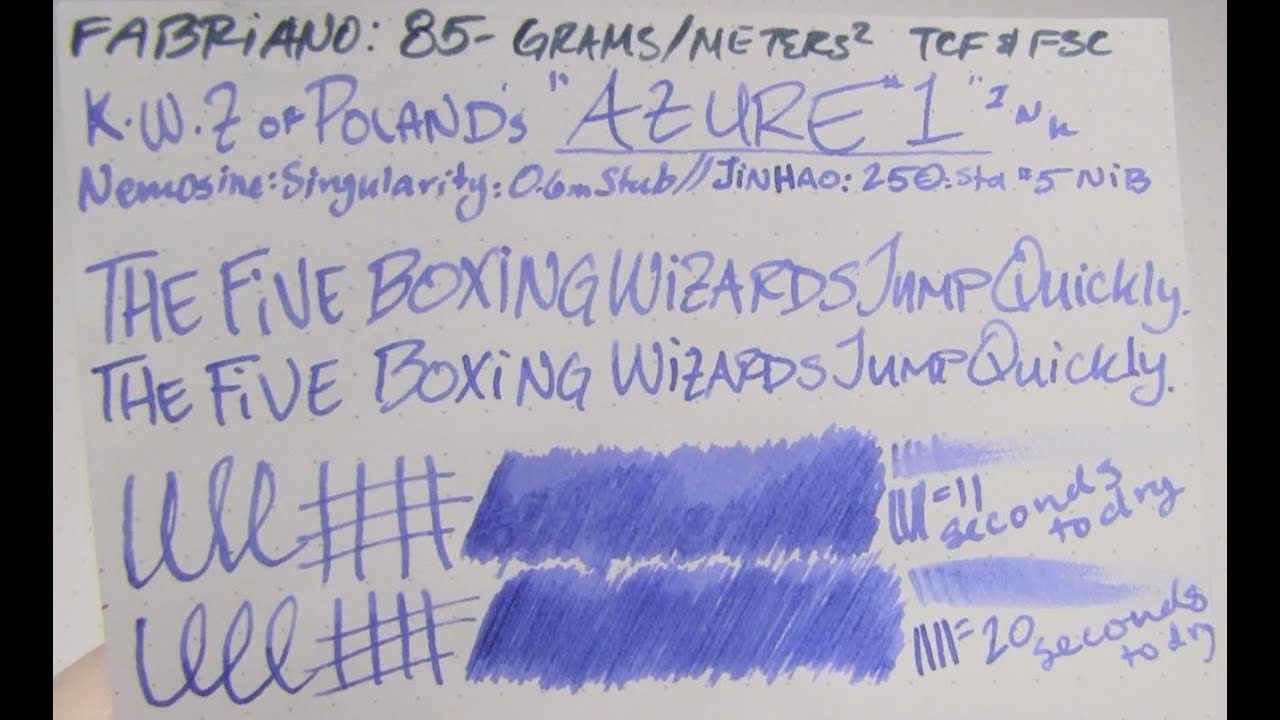 FABRIANO: 85- GRAMS/METERS² TCF & FSC
K.W.Z OF POLAND's "AZURE #1" INK
Nemosine: Singularity: 0.6m Stub // JINHAO: 250: Std #5 NiB
THE FiVE BOXiNG WiZARDS JUMP Quickly.
THE FiVE BOXiNG WiZARDS JUMP Quickly.
= 11 seconds to dry
= 20 seconds to dry